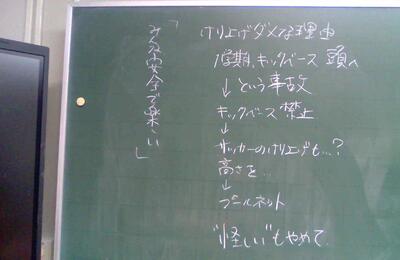 「みんな安全で楽しい」
けり上げダメな理由
1学期、キックベース 頭へ
↓という事故
キックベース禁止
↓
サッカーのけり上げも…?
高さを…
↓
プールネット
"怪しい"もやめて